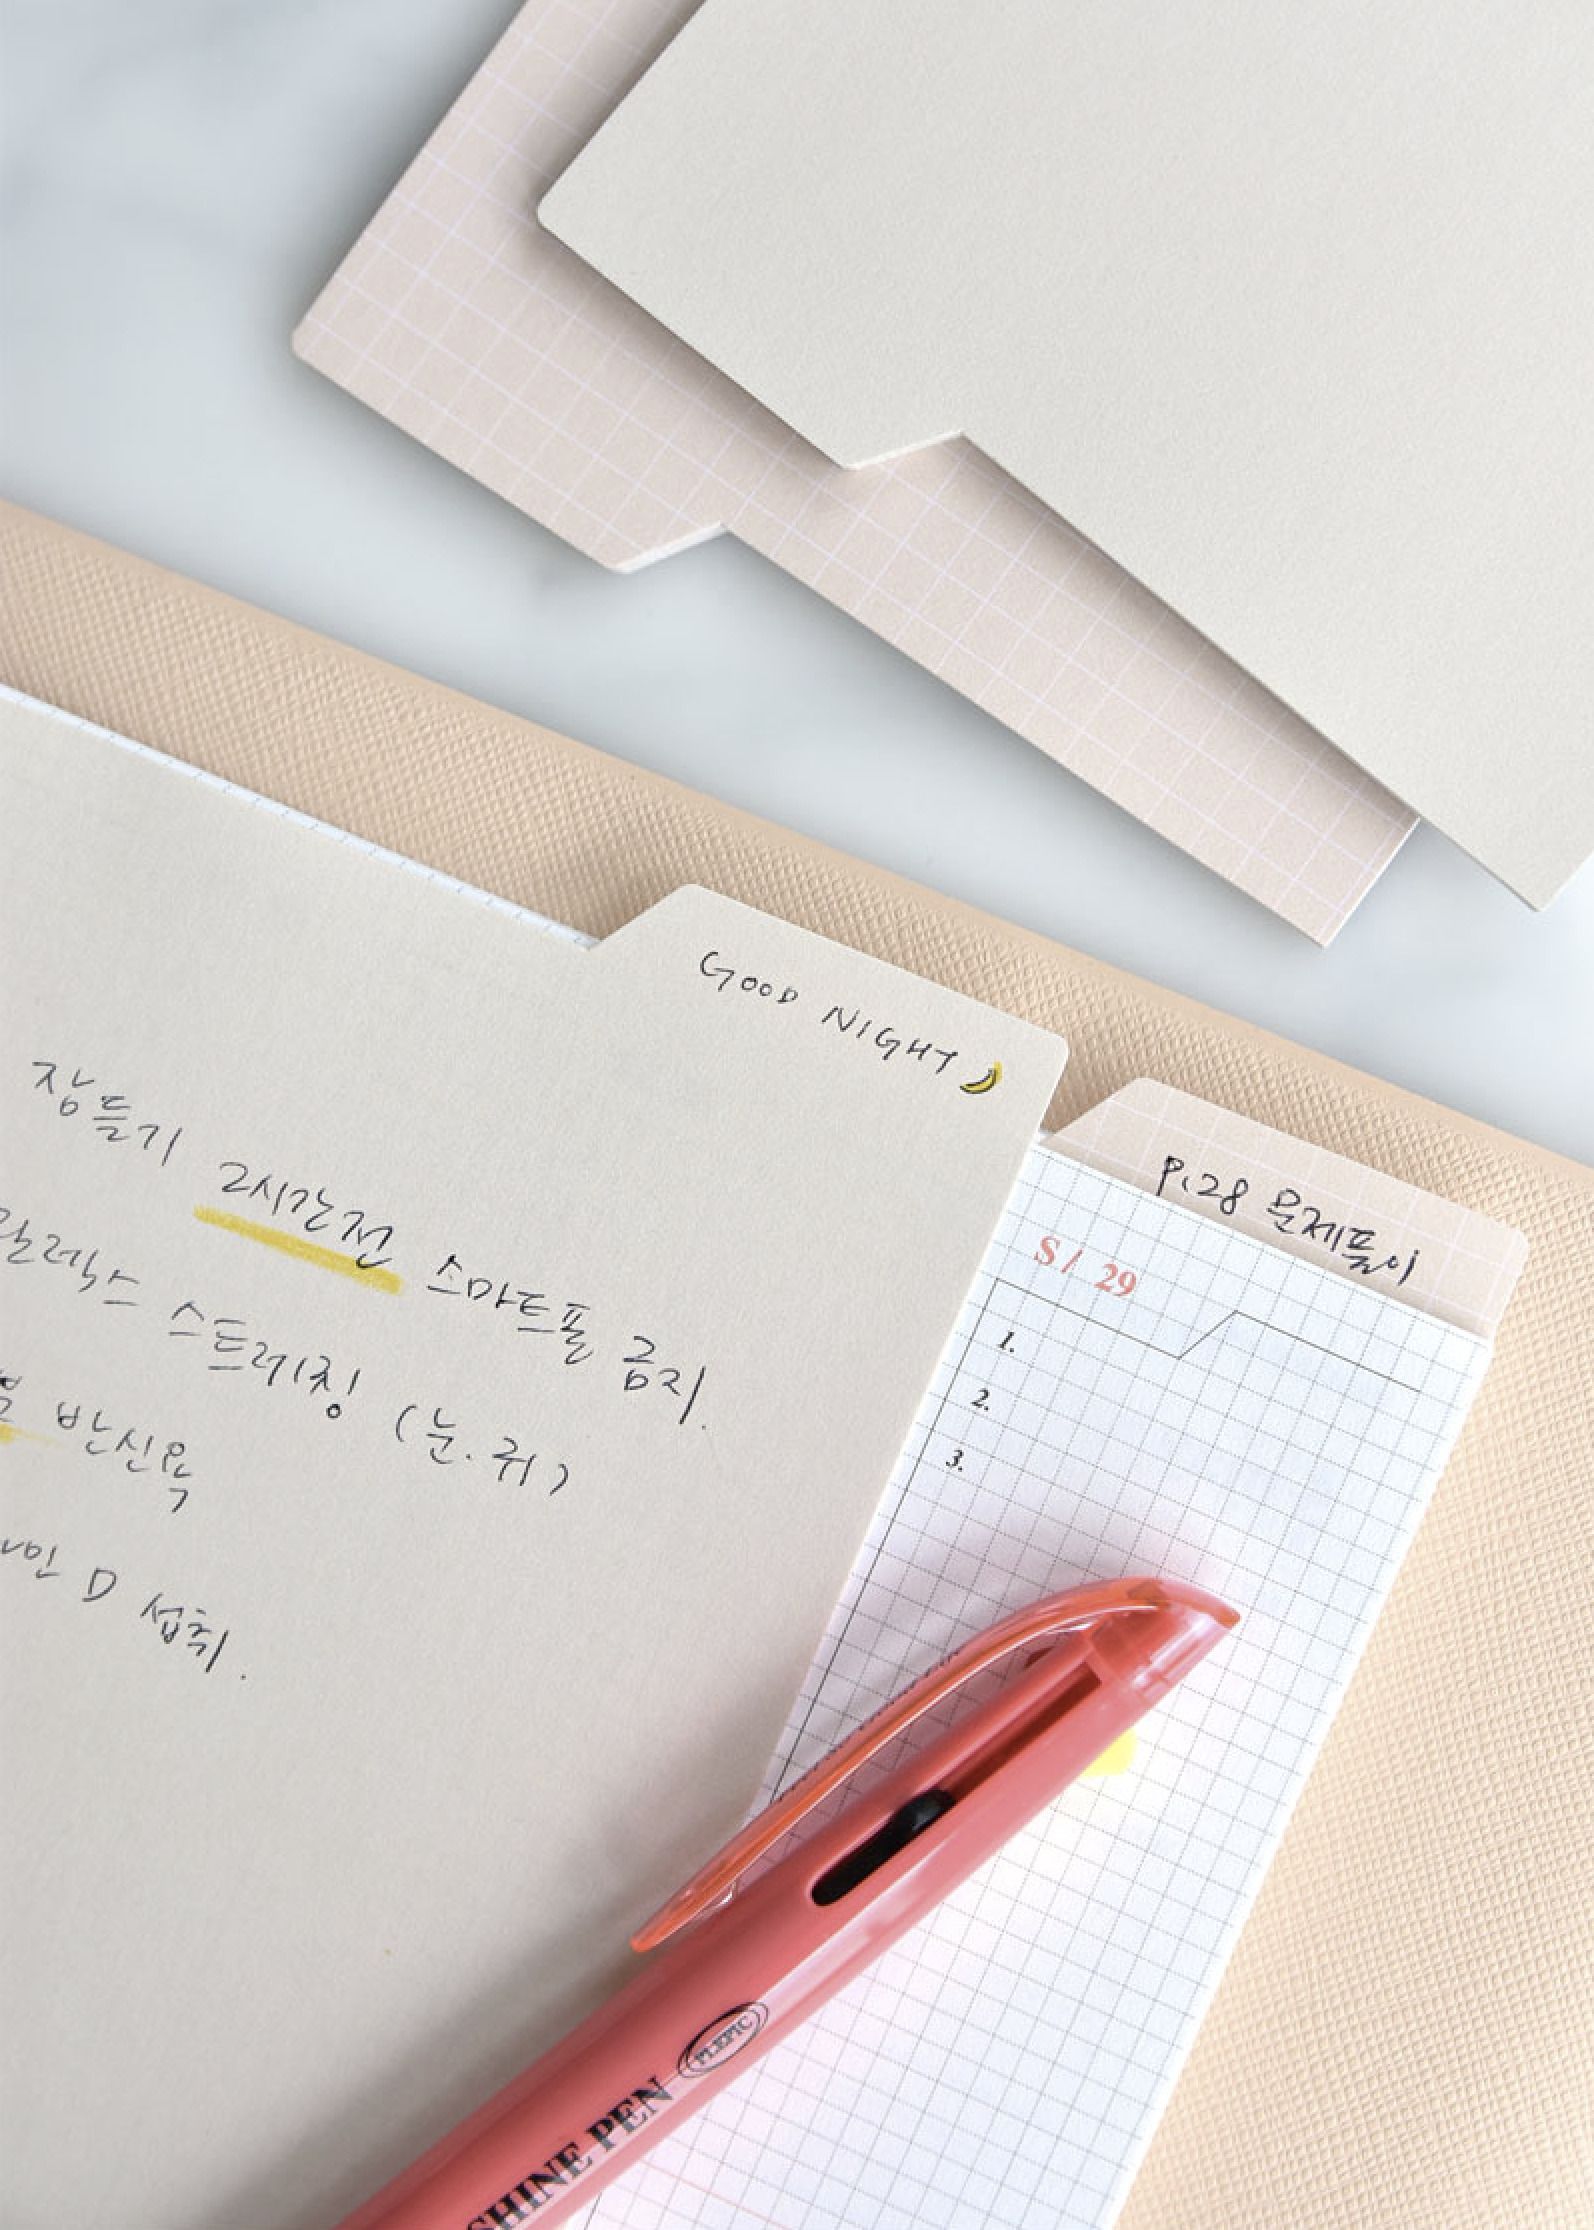 GOOD NIGHT
잠들기 2시간전 스마트폰 금지.
스트레칭 (눈. 귀)
반신욕
D 섭취.
P.28 문제풀이
S/ 29
1.
2.
3.
SHINE PEN PLEPIC